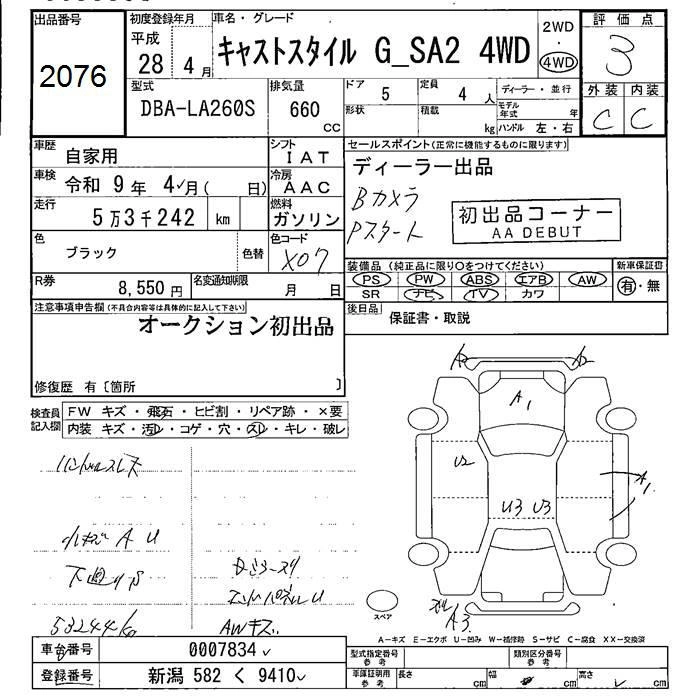 出品番号
2076
初度登録年月
平成
28 4月
車名・グレード
キャストスタイル G_SA2 4WD
2WD
・
4WD
評価点
3
外装 内装
C C
型式
DBA-LA260S
排気量
660 cc
ドア 5
形状
定員 4 人
積載 kg
ディーラー・並行
モデル年式 年
ハンドル 左・右
車歴 自家用
シフト IAT
車検 令和 9年 4月( 日)
冷房 AAC
走行 5万3千242 km
燃料 ガソリン
色 ブラック
色替
色コード X07
R券 8,550 円
名変通知期限 月 日
セールスポイント(正常に機能するものに限ります)
ディーラー出品
Bカメラ
Pスタート
初出品コーナー
AA DEBUT
装備品(純正品に限り○をつけてください)
PS PW ABS エアB AW
SR ナビ TV カワ
新車保証書
有・無
後日品 保証書・取説
注意事項申告欄(不具合内容等は具体的に記入して下さい)
オークション初出品
修復歴 有〔箇所 〕
検査員記入欄
FW キズ・飛石・ヒビ割・リペア跡・×要
内装 キズ・汚レ・コゲ・穴・スレ・キレ・破レ
ハンドルスレ
小キズ A U
下廻りS
エンドパネルU
AWキズ
A2 A2
A1
U2
U3 U3
A1
A3
スペア
A-キズ E-エクボ U-凹み W-補修跡 S-サビ C-腐食 XX-交換済
車台番号 0007834
登録番号 新潟 582 く 9410
型式指定番号 参考
類別区分番号 参考
車庫証明用 参考
長さ cm
幅 cm
高さ cm